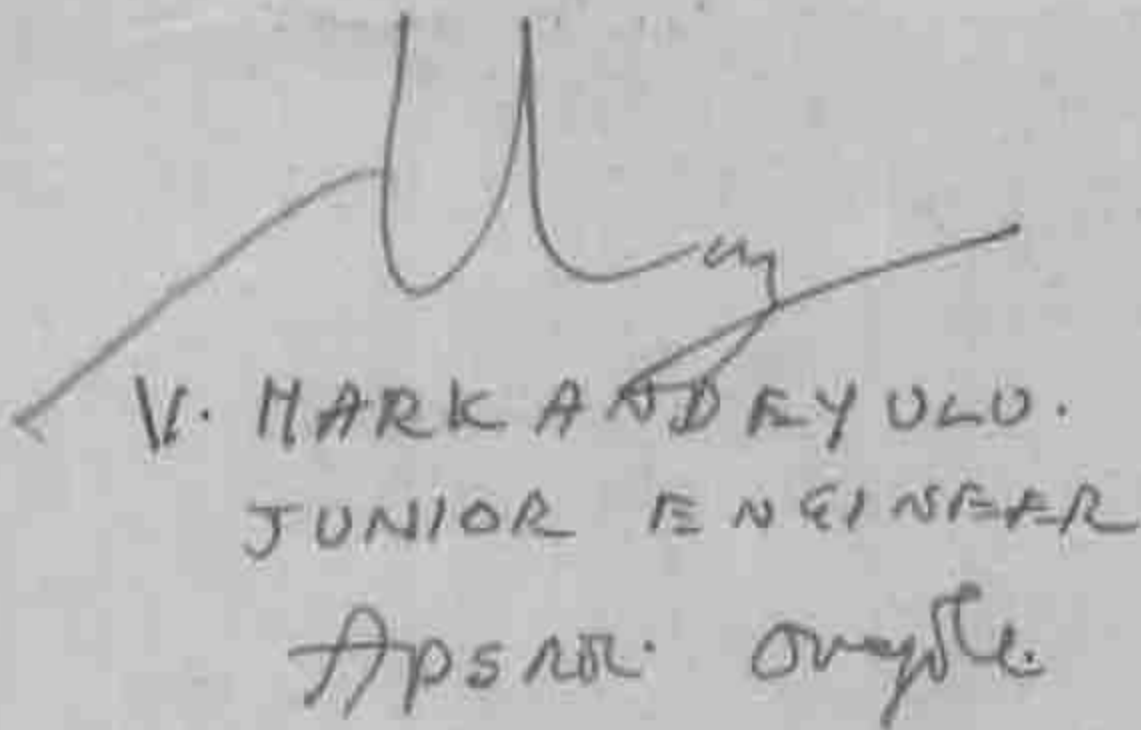 V. MARKANDEYULU.
JUNIOR ENGINEER
APSRTC. Ongole.